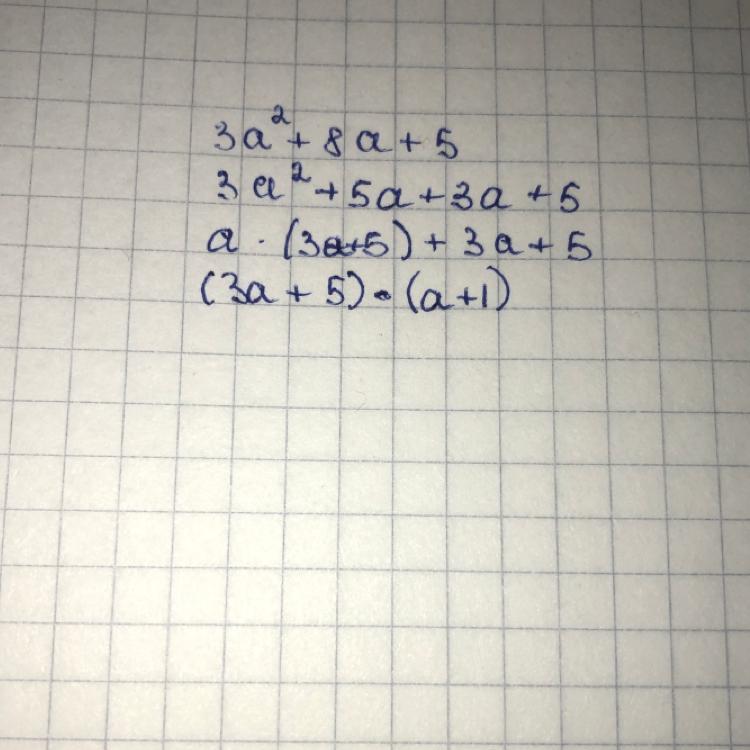 3a² + 8a + 5
3a² + 5a + 3a + 5
a · (3a+5) + 3a + 5
(3a + 5) · (a+1)